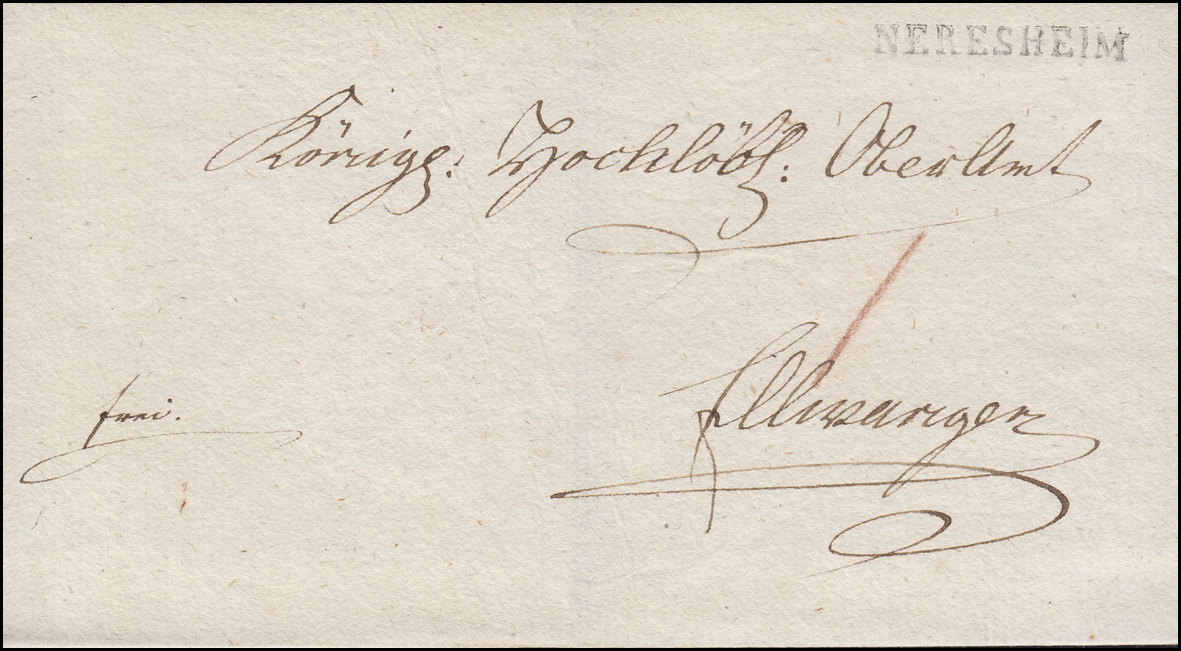 NERESHEIM
Königl: Hochlöbl: OberAmt
Ellwangen
frei.